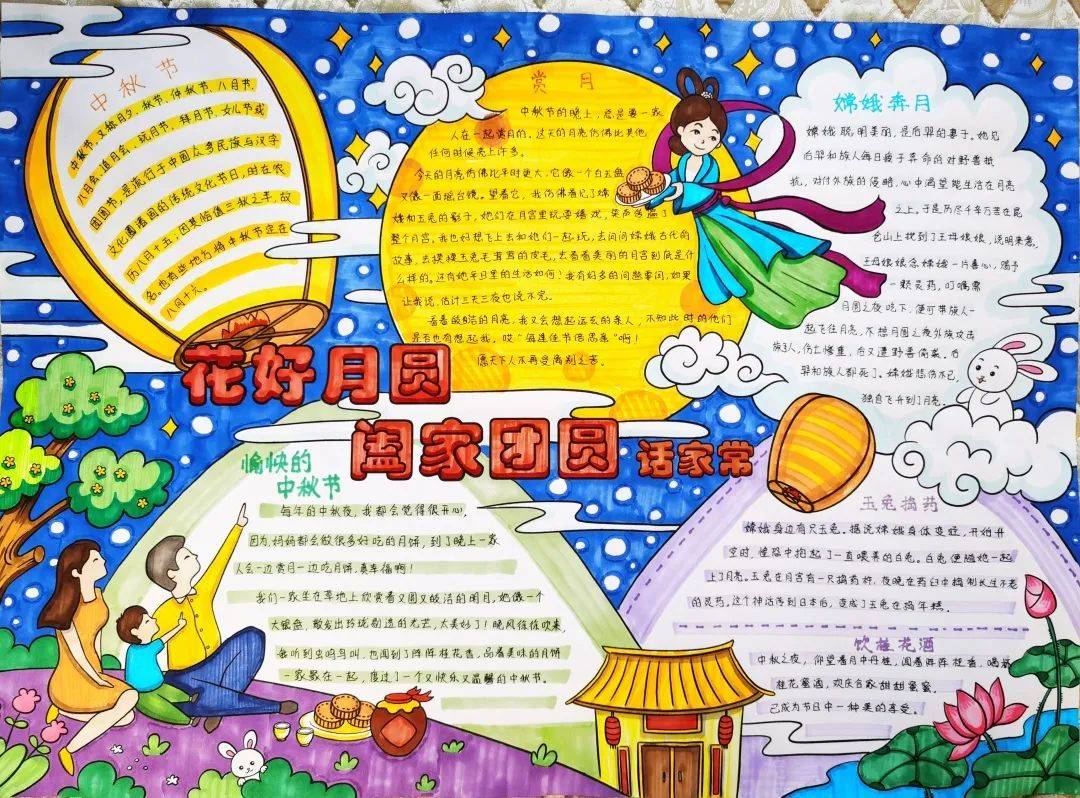 中秋节
中秋节,又称月夕、秋节、仲秋节、八月节、
八月会、追月会、玩月节、拜月节、女儿节或
团圆节,是流行于中国众多民族与汉字
文化圈诸国的传统文化节日,时在农
历八月十五;因其恰值三秋之半,故
名。也有些地方将中秋节定在
八月十六。
赏月
中秋节的晚上,总是要一家
人在一起赏月的,这天的月亮仿佛比其他
任何时候亮上许多。
今天的月亮仿佛比平时更大,它像一个白玉盘
又像一面瑶台镜。望着它,我仿佛看见了嫦
娥和玉兔的影子,她们在月宫里玩耍嬉戏,笑声传遍了
整个月宫。我也好想飞上去和她们一起玩,去问问嫦娥古代的
故事,去摸摸玉兔毛茸茸的皮毛,去看看美丽的月宫到底是什
么样的。还有她平日里的生活如何!我有好多的问题要问,如果
让我说,估计三天三夜也说不完。
看着皎洁的月亮,我又会想起远去的亲人,不知此时的他们
是否也有想起我,哎“每逢佳节倍思亲”啊!
愿天下人不再受离别之苦。
嫦娥奔月
嫦娥聪明美丽,是后羿的妻子。她见
后羿和族人每日疲于奔命的对野兽抵
抗,对付外族的侵略,心中渴望能生活在月亮
之上。于是历尽千辛万苦在昆
仑山上找到了王母娘娘,说明来意,
王母娘娘念嫦娥一片善心,赐予
一颗灵药,叮嘱需
月圆之夜吃下,便可带族人一
起飞往月亮,不想月圆之夜外族攻击
族人,伤亡惨重,后又遭野兽偷袭。后
羿和族人都死了。嫦娥悲伤不已,
独自飞升到了月亮。
花好月圆
阖家团圆 话家常
愉快的
中秋节
每年的中秋夜,我都会觉得很开心,
因为妈妈都会做很多好吃的月饼,到了晚上一家
人会一边赏月一边吃月饼,真幸福啊!
我们一家坐在草地上欣赏着又圆又皎洁的明月,她像一个
大银盘,散发出玲珑剔透的光芒,太美妙了!晚风徐徐吹来,
我听到虫鸣鸟叫,也闻到了阵阵桂花香,品着美味的月饼
一家聚在一起,度过了一个又快乐又温馨的中秋节。
玉兔捣药
嫦娥身边有只玉兔。据说嫦娥身体变轻,开始升
空时,惶恐中抱起了一直喂养的白兔。白兔便随她一起
上了月亮。玉兔在月宫有一只捣药杵,夜晚在药臼中捣制长生不老
的灵药。这个神话传到日本后,变成了玉兔在捣年糕。
饮桂花酒
中秋之夜,仰望着月中丹桂,闻着阵阵桂香,喝杯
桂花蜜酒,欢庆合家甜甜蜜蜜。
已成为节日中一种美的享受。